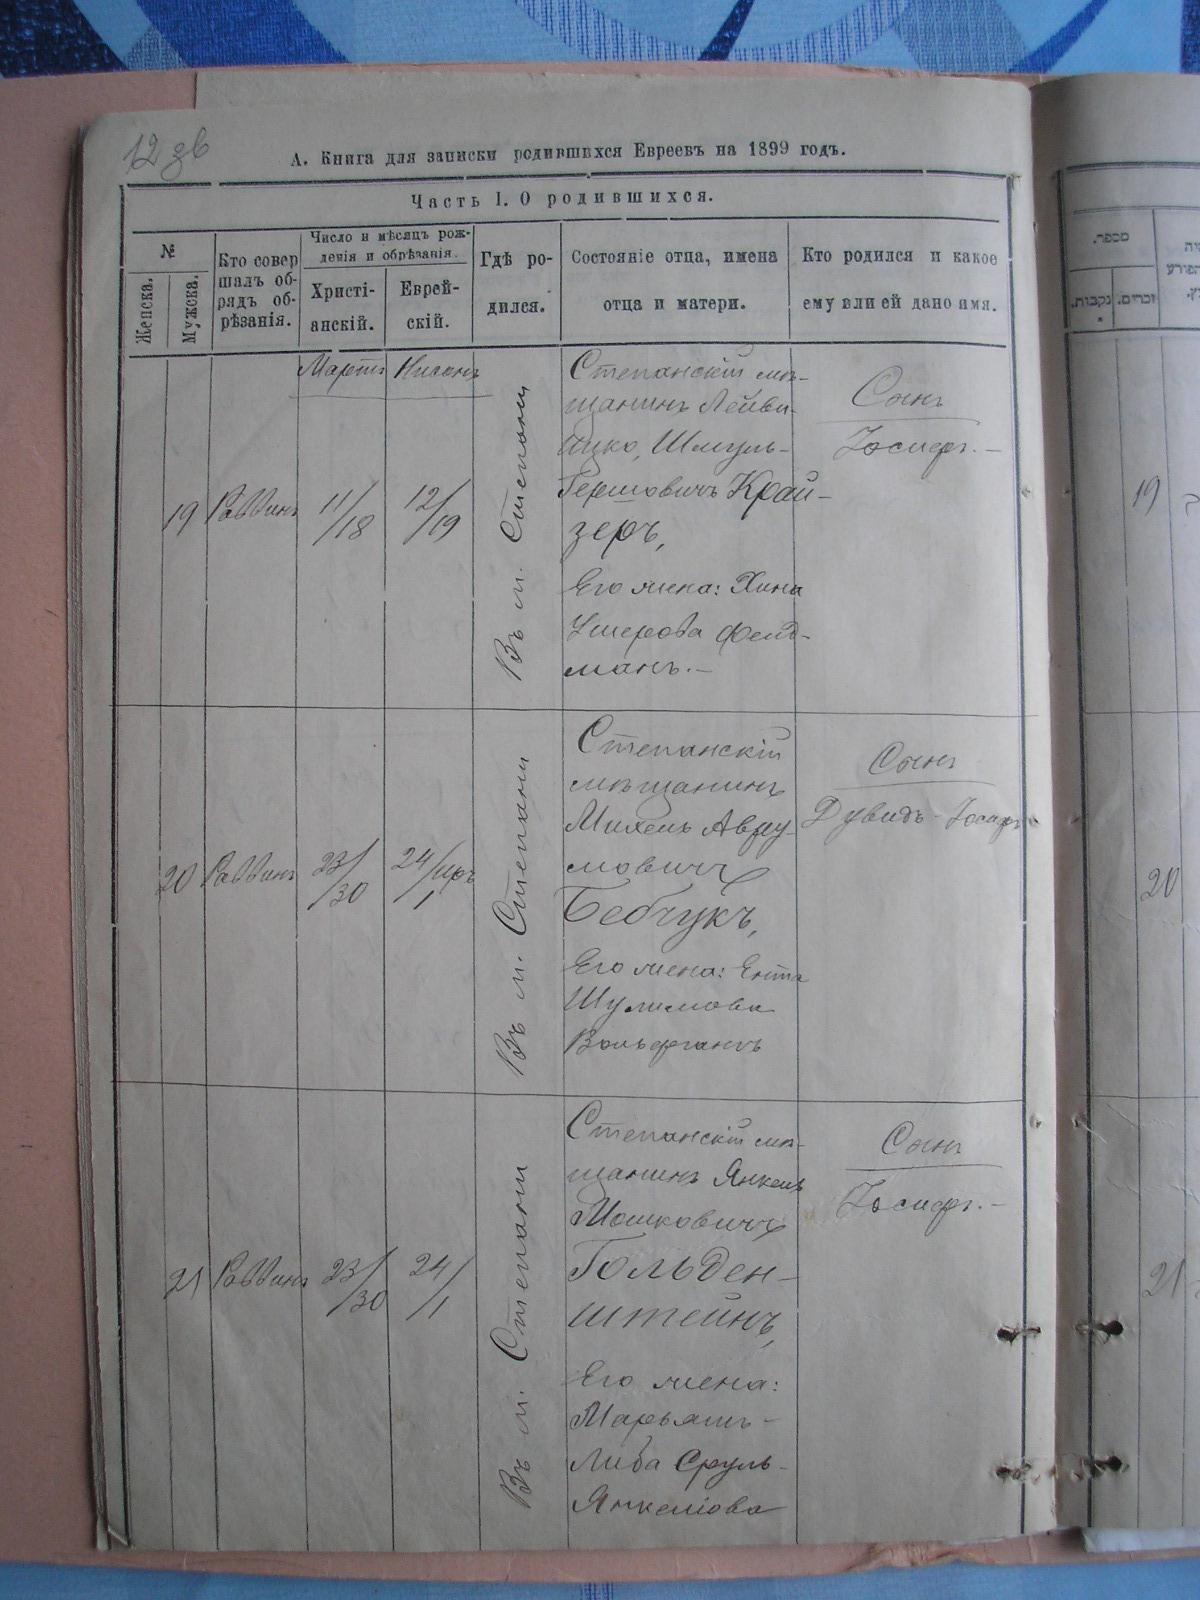 12 зв
А. Книга для записки родившихся Евреевъ на 1899 годъ.
Часть I. О родившихся.
№
Женска.
Мужска.
Кто совер
шалъ об-
рядъ об-
рѣзанія.
Число и мѣсяцъ рож-
денія и обрѣзанія.
Христі-
анскій.
Еврей-
скій.
Гдѣ ро-
дился.
Состояніе отца, имена
отца и матери.
Кто родился и какое
ему или ей дано имя.
Мартъ
Нисонъ
19
Раввинъ
11/18
12/19
Въ м. Степани
Степанскій мѣ-
щанинъ Лейви-
Ицко, Шмуль-
Гершовичъ Край-
зеръ,
Его жена: Хина
Ушерова Фельд-
манъ.-
Сынъ
Іосифъ.-
20
Раввинъ
23/30
24/Иръ 1
Въ м. Степани
Степанскій
мѣщанинъ
Михель Авру-
мовичъ
Бебчукъ,
Его жена: Ента
Шулимова
Сынъ
Дувидъ-Іосифъ
21
Раввинъ
23/30
24/1
Въ м. Степани
Степанскій мѣ-
щанинъ Янкель
Мошковичъ
Гольден-
штейнъ,
Его жена:
Марьяшъ-
Либа Сруль-
Янкеліова
Сынъ
Іосифъ.-
מספר.
נקבות.
זכרים.
19
20
21